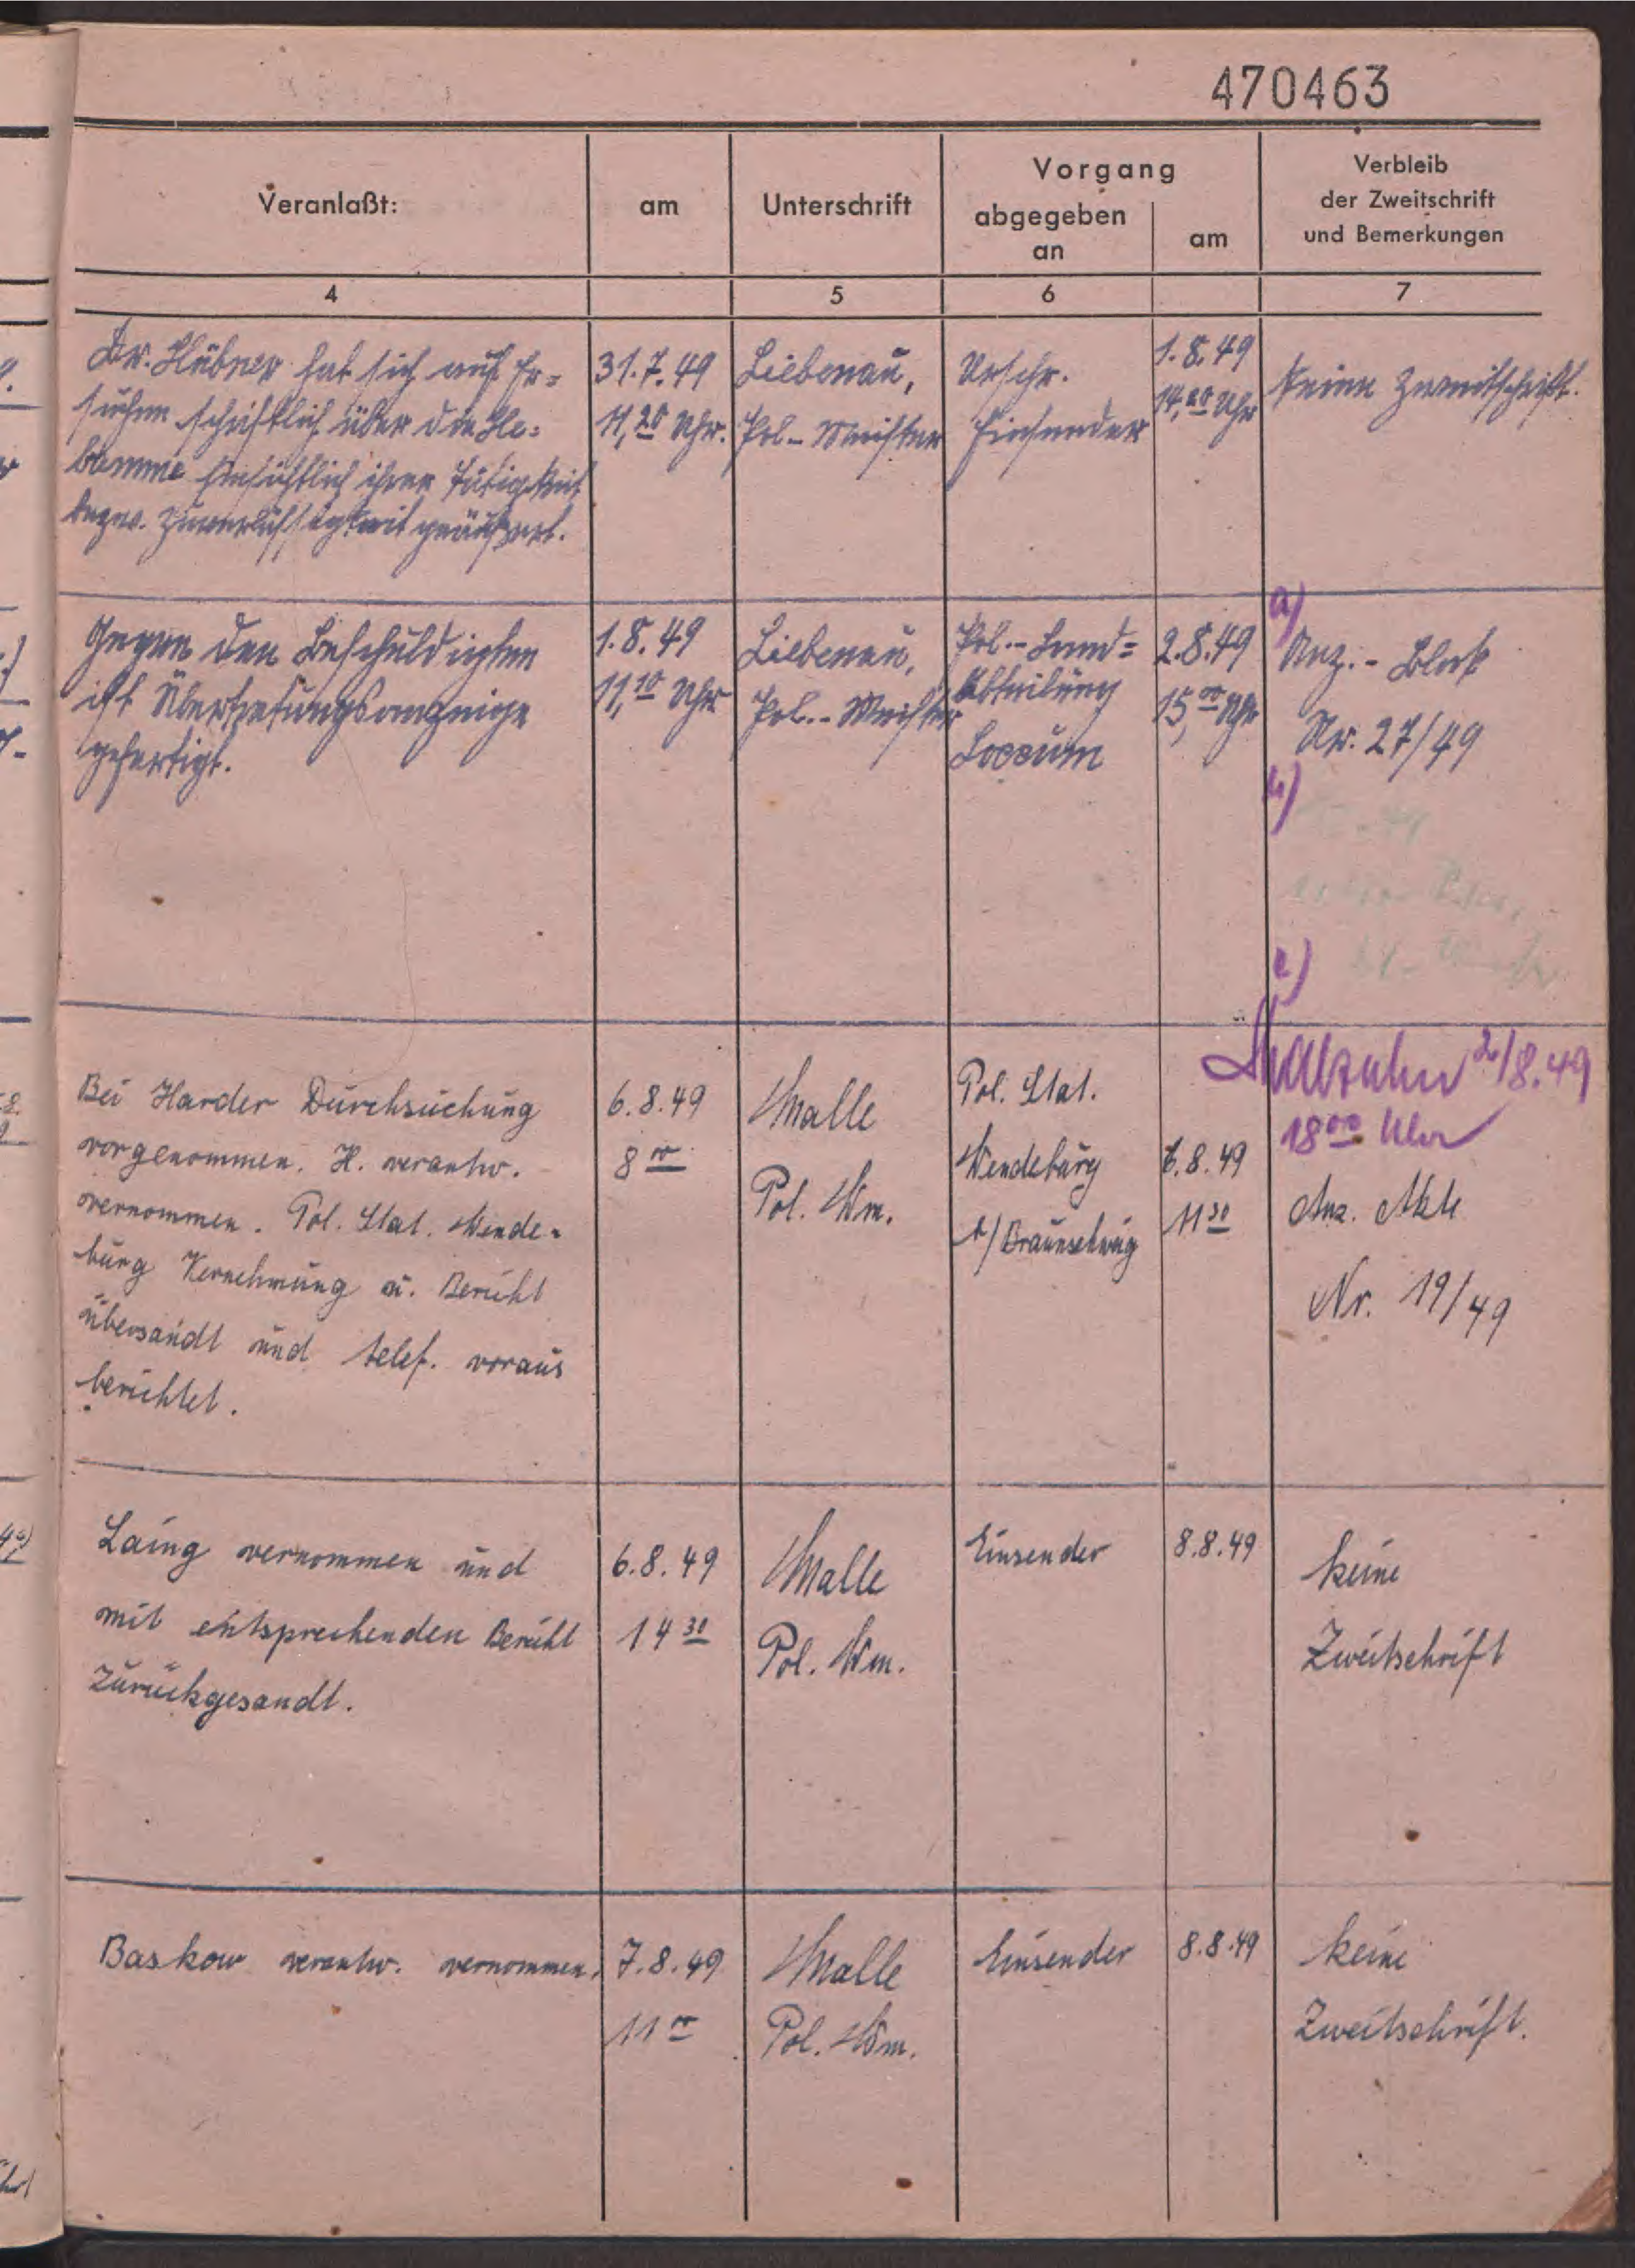 470463
Veranlaßt:
am
Unterschrift
Vorgang
abgegeben
an
am
Verbleib
der Zweitschrift
und Bemerkungen
4
5
6
7
Dr. Hübner hat sich auf Er=
suchen schriftlich über die He=
bamme hinsichtlich ihrer Tätigkeit
bezw. Zuverlässigkeit geäußert.
31.7.49
11,20 Uhr.
Liebenau,
Pol.-Meister
Urschr.
Einsender
1.8.49
14,20 Uhr
Keine Zweitschrift.
Gegen den Beschuldigten
ist Übertretungsanzeige
gefertigt.
1.8.49
11,10 Uhr
Liebenau,
Pol.-Meister
Pol.-Land=
Abteilung
Loccum
2.8.49
15,00 Uhr
a)
Anz.-Block
Nr. 27/49
b)
c)
2/8.49
18 00 Uhr
Bei Harder Durchsuchung
vorgenommen. H. verantw.
vernommen. Pol. Stat. Wende-
burg Vernehmung u. Bericht
übersandt und telef. voraus
berichtet.
6.8.49
8 00
Malle
Pol. Wm.
Pol. Stat.
Wendeburg
b/Braunschweig
6.8.49
11 30
Anz. Akte
Nr. 19/49
Laing vernommen und
mit entsprechenden Bericht
zurückgesandt.
6.8.49
14 30
Malle
Pol. Wm.
Einsender
8.8.49
keine
Zweitschrift
Baskow verantw. vernommen.
7.8.49
11 00
Malle
Pol. Wm.
Einsender
8.8.49
keine
Zweitschrift.